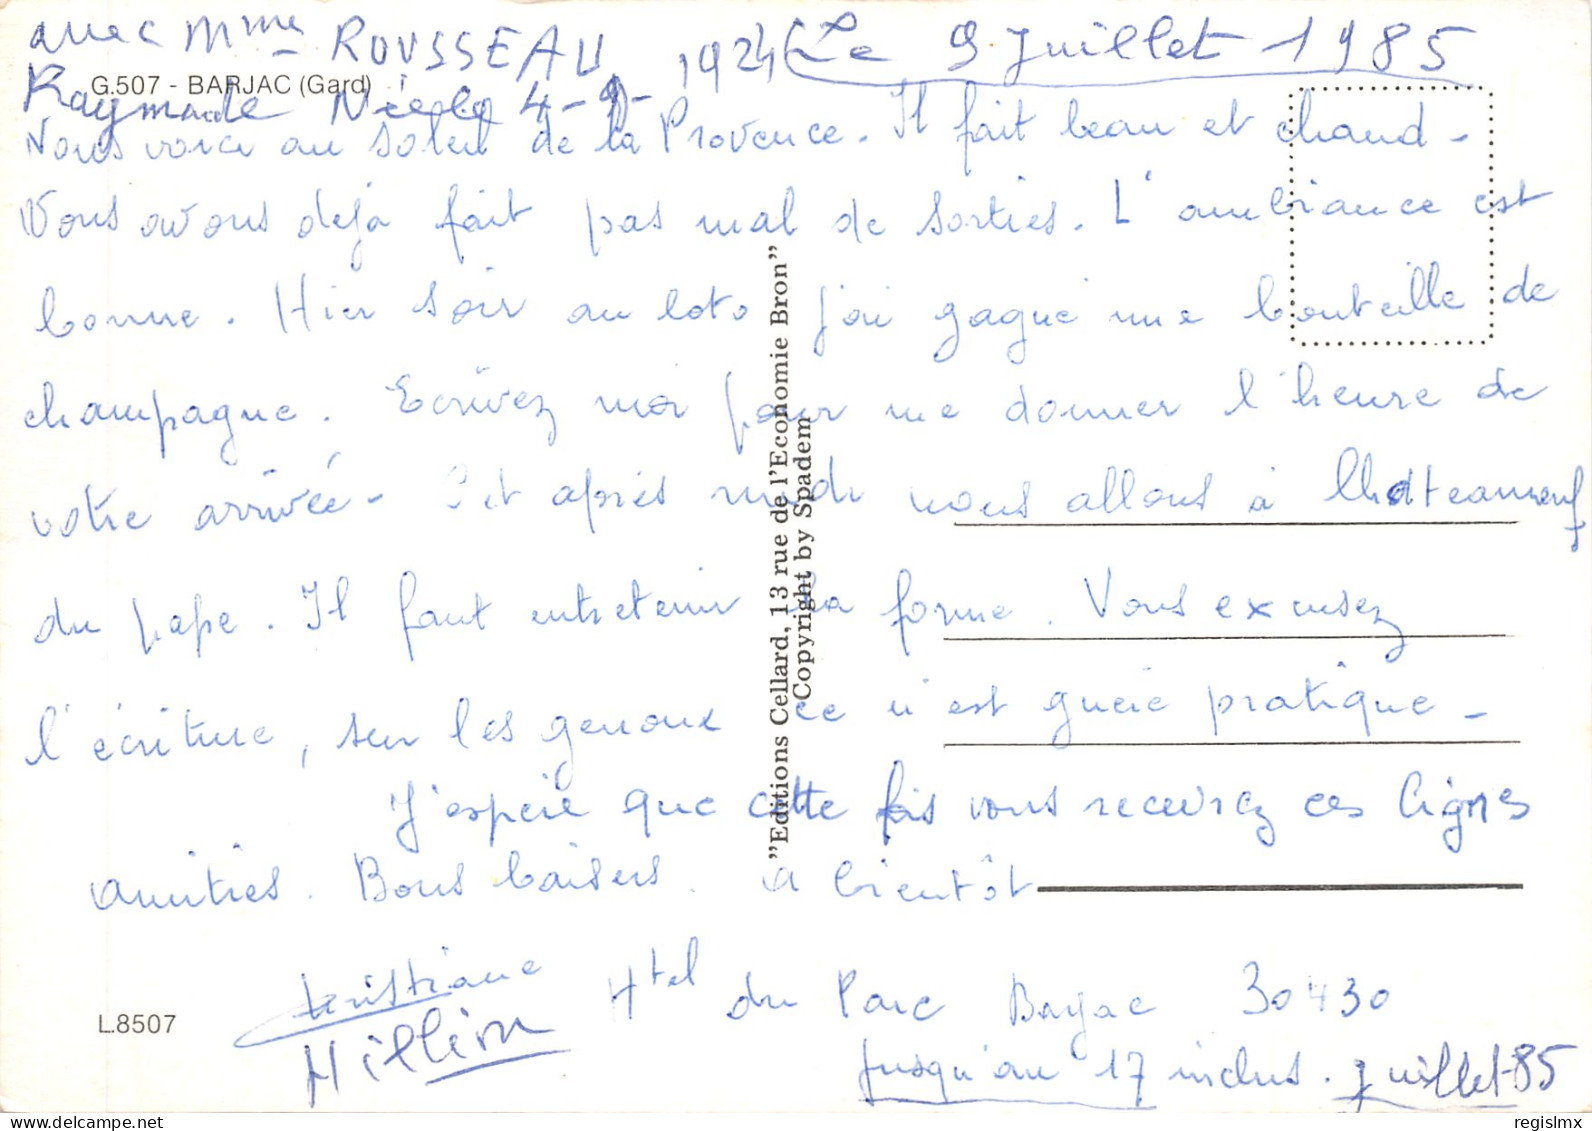 avec Mme ROUSSEAU 1924 Le 9 Juillet 1985
G.507 - BARJAC (Gard)
Raymonde Nicole 4-9-
Nous voici au soleil de la Provence. Il fait beau et chaud -
Nous avons déjà fait pas mal de sorties. L'ambiance est
bonne. Hier soir au loto j'ai gagné une bouteille de
champagne. Ecrivez moi pour me donner l'heure de
votre arrivée - Cet après midi nous allons à Châteauneuf
du pape. Il faut entretenir la forme. Vous excusez
l'écriture, sur les genoux ce n'est guère pratique -
J'espère que cette fois vous recevrez ces lignes
amitiés. Bons baisers. A bientôt
Kristiane Htel du Parc Barjac 30430
Hillion
Jusqu'au 17 inclus. juillet-85
L.8507
"Editions Cellard, 13 rue de l'Economie Bron"
Copyright by Spadem
delcampe.net
regislmx